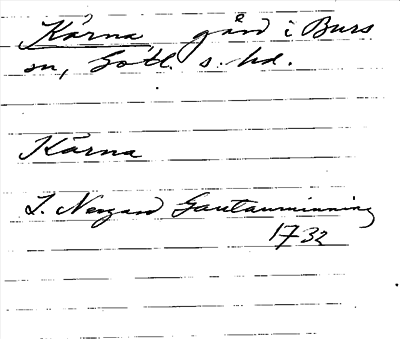 Kärna, gård i Burs
sn, Gotl. s. hd.
Kärna
L. Nergard Gautauminning
1732